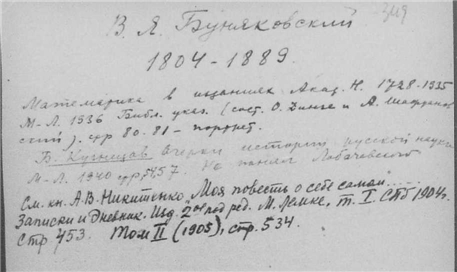 В. Я. Буняковский
1804-1889.
Математика в изданиях Акад. Н. 1728-1935
М-Л. 1936 Библ. указ. (сост. О. Динзе и А. Шафранов
ский). стр 80. 81 - портрет.
Б. Кузнецов Очерки истории русской науки
М-Л. 1940 стр. 457. Не понял Лобачевского
См. кн. А.В. Никитенко „Моя повесть о себе самом"....
Записки и Дневник. Изд. 2ое под ред. М. Лемке, т. I. Спб 1904г.
Стр 453. Том II (1905), стр. 534.